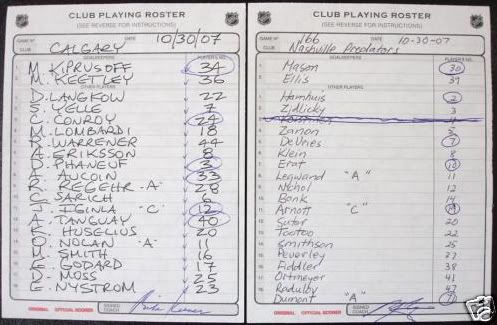 CLUB PLAYING ROSTER
(SEE REVERSE FOR INSTRUCTIONS)
GAME Nº DATE 10/30/07
CLUB CALGARY
GOALKEEPERS PLAYER'S NO.
M. KIPRUSOFF 34
M. KEETLEY 36
OTHER PLAYERS
D. LANGKOW 22
S. YELLE 7
C. CONROY 24
M. LOMBARDI 18
R. WARRENER 44
A. ERIKSSON 8
D. PHANEUF 3
A. AUCOIN 33
R. REGEHR "A" 28
C. SARICH 6
J. IGINLA "C" 12
A. TANGUAY 40
K. HUSELIUS 20
O. NOLAN "A" 11
M. SMITH 16
E. GODARD 17
D. MOSS 25
E. NYSTROM 23
ORIGINAL OFFICIAL SCORER SIGNED COACH
CLUB PLAYING ROSTER
(SEE REVERSE FOR INSTRUCTIONS)
GAME Nº 166 DATE 10-30-07
CLUB Nashville Predators
GOALKEEPERS PLAYER'S NO.
Mason 30
Ellis 39
OTHER PLAYERS
Hamhuis 2
Zidlicky 3
Zanon 5
DeVries 7
Klein 8
Erat 10
Legwand "A" 11
Nichol 12
Bonk 14
Arnott "C" 19
Suter 20
Tootoo 22
Smithson 25
Peverley 27
Fiddler 38
Ortmeyer 41
Radulov 47
Dumont "A" 71
ORIGINAL OFFICIAL SCORER SIGNED COACH